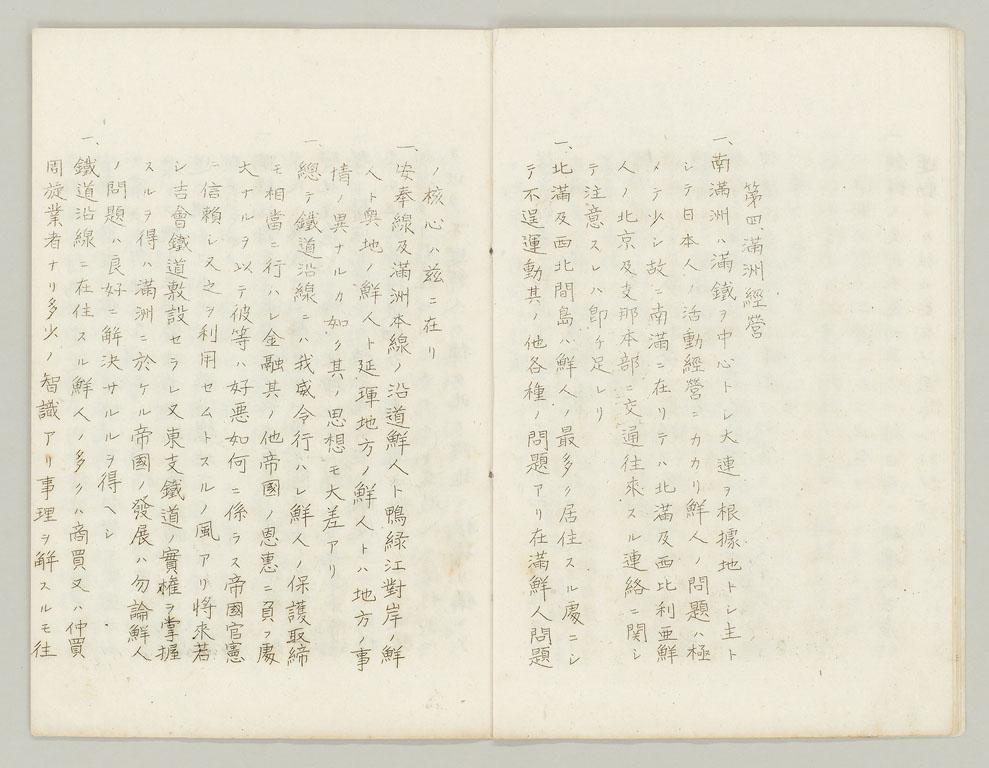 第四、滿洲經營
一、南滿洲ハ滿鐵ヲ中心トシ大連ヲ根據地トシ主ト
シテ日本人ノ活動經營ニカカリ鮮人ノ問題ハ極
メテ少シ故ニ南滿ニ在リテハ北滿及西比利亜鮮
人ノ北京及支那本部ニ交通往來スル連絡ニ関シ
テ注意スレハ卽チ足レリ
一、北滿及西北間島ハ鮮人ノ最多ク居住スル處ニシ
テ不逞運動其ノ他各種ノ問題アリ在滿鮮人問題
ノ核心ハ茲ニ在リ
一、安奉線及滿洲本線ノ沿道鮮人ト鴨緑江對岸ノ鮮
人ト奥地ノ鮮人ト延琿地方ノ鮮人トハ地方ノ事
情ノ異ナルカ如ク其ノ思想モ大差アリ
一、總テ鐵道沿線ニハ我威令行ハレ鮮人ノ保護取締
モ相當ニ行ハレ金融其ノ他帝國ノ恩惠ニ負フ處
大ナルヲ以テ彼等ハ好悪如何ニ係ラス帝國官憲
ニ信賴シ又之ヲ利用セムトスルノ風アリ将來若
シ吉會鐵道敷設セラレ又東支鐵道ノ實權ヲ掌握
スルヲ得ハ滿洲ニ於ケル帝國ノ發展ハ勿論鮮人
ノ問題ハ良好ニ解決サルルヲ得ヘシ
一、鐵道沿線ニ在住スル鮮人ノ多クハ商買又ハ仲買
周旋業者ナリ多少ノ智識アリ事理ヲ解スルモ往